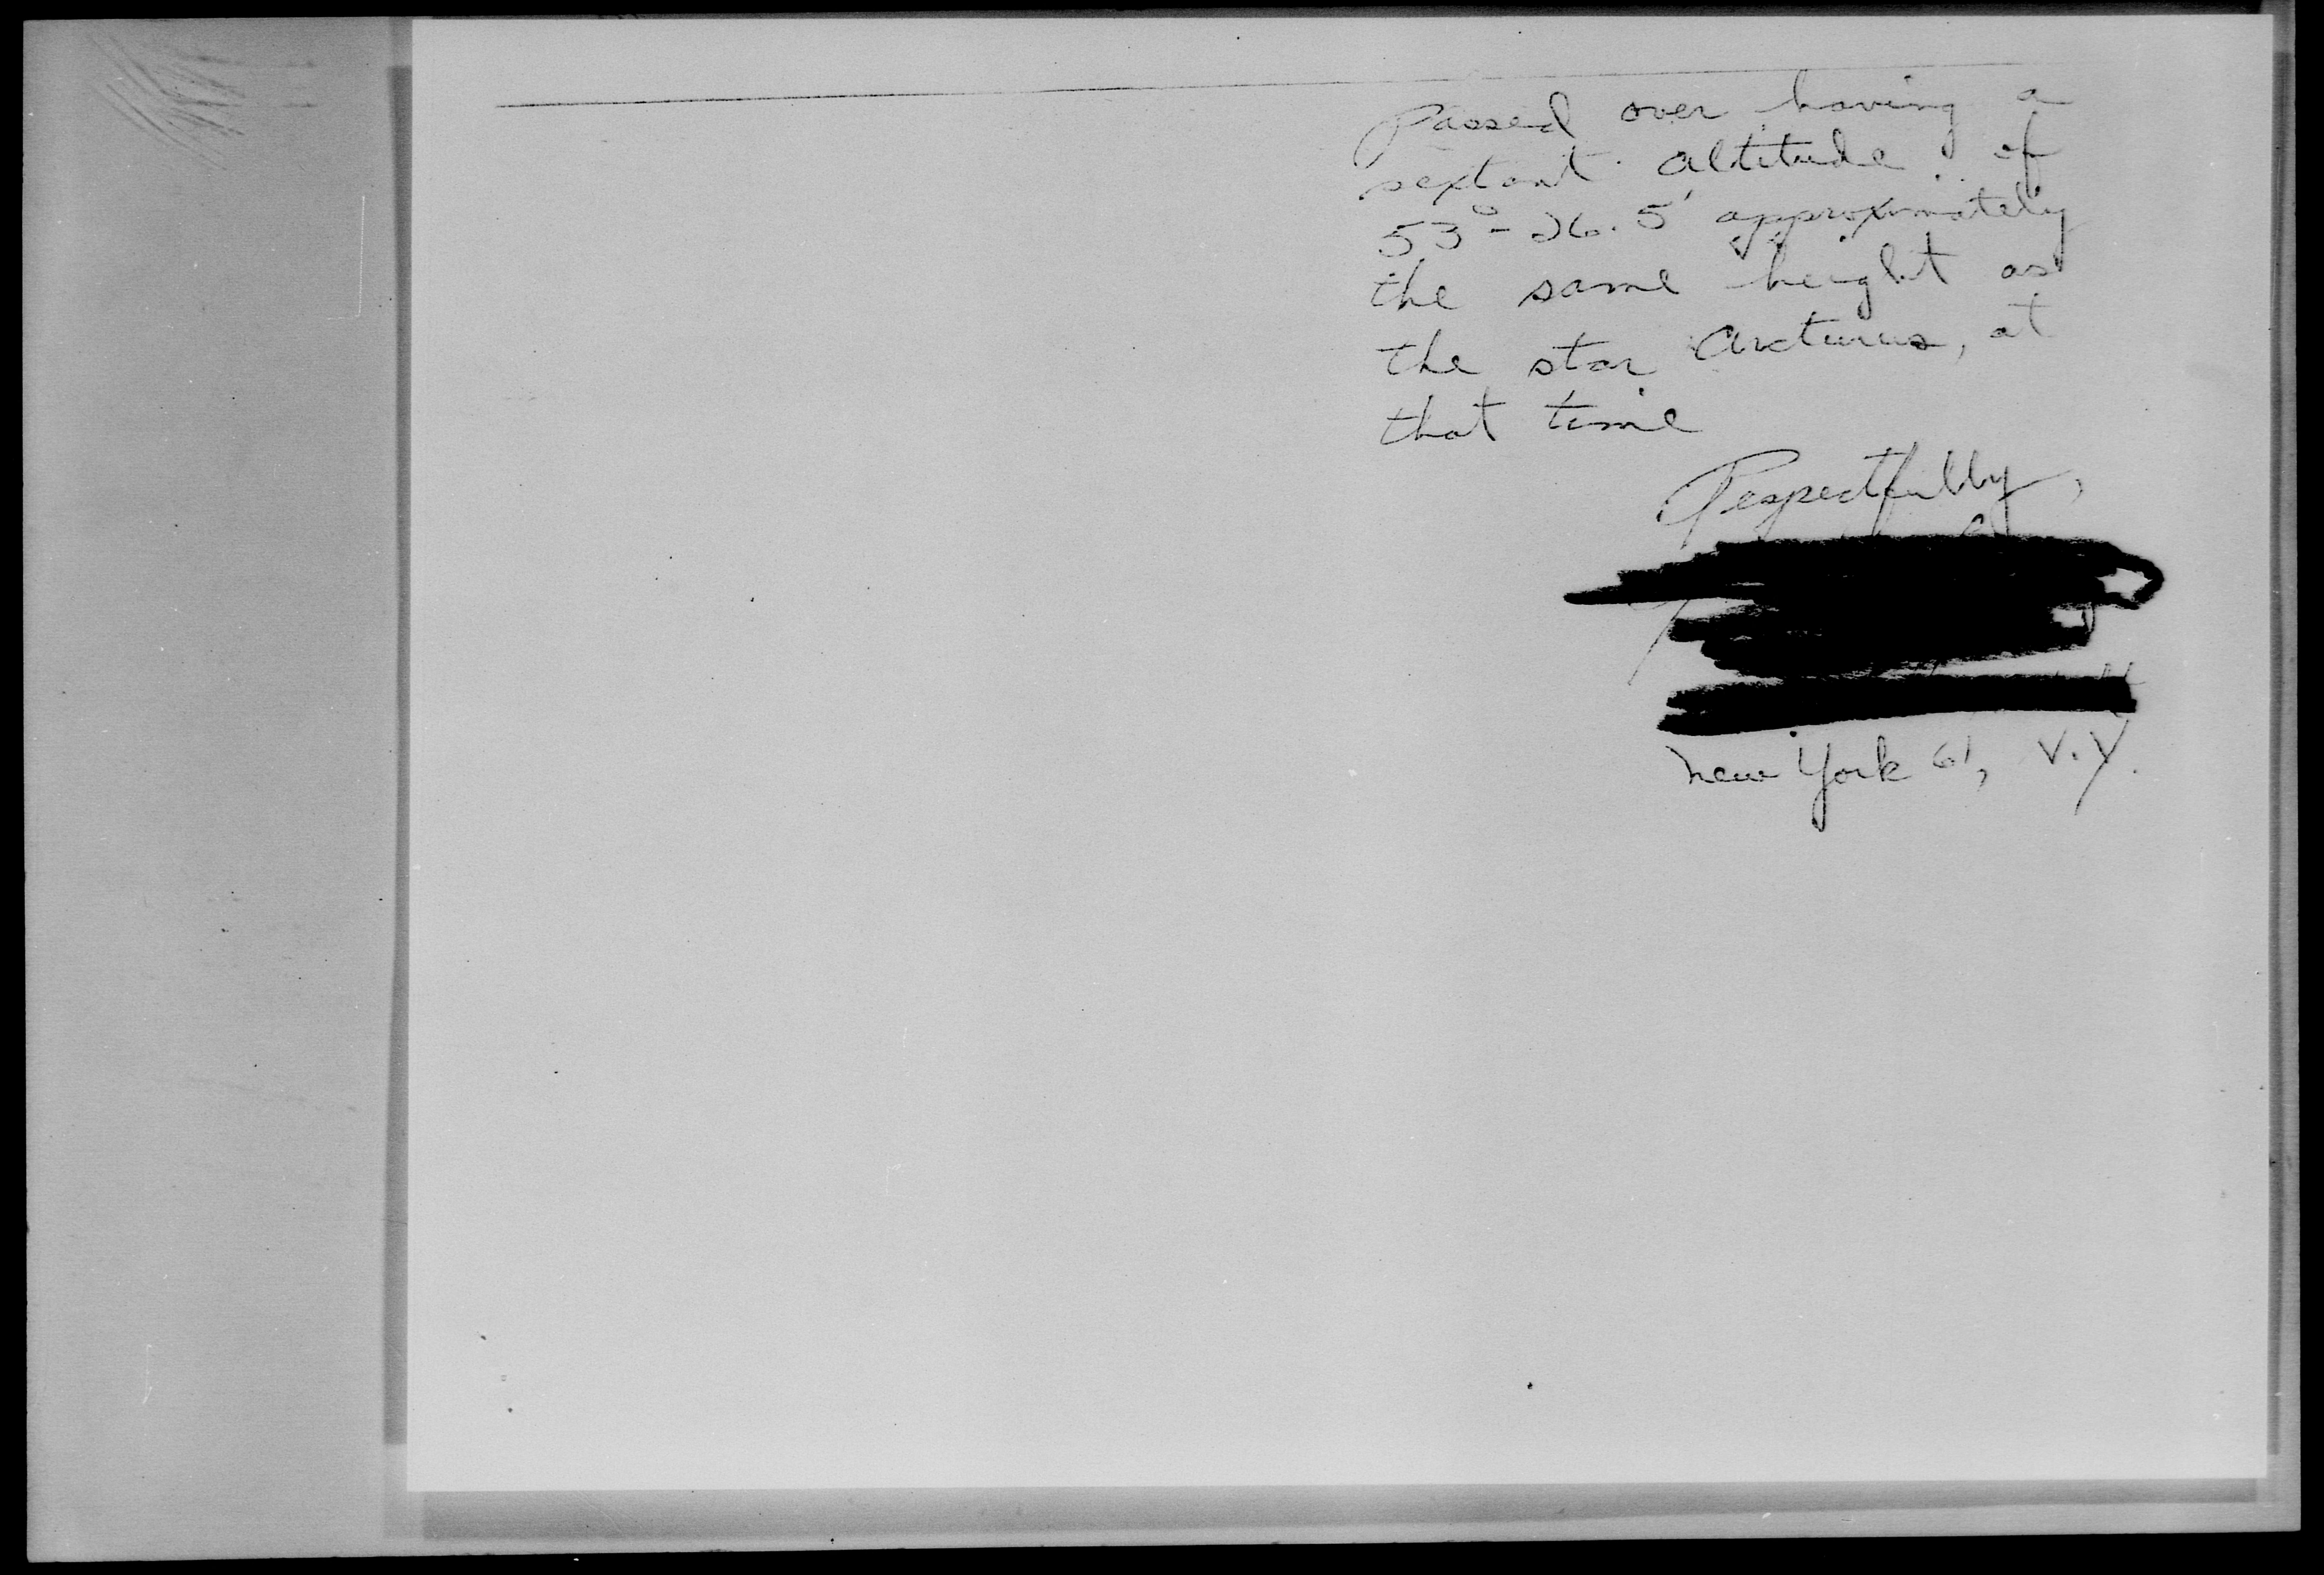 Passed over having a
sextant altitude of
53°-26.5' approximately
the same height as
the star Arcturus, at
that time
Respectfully,
New York 61, N.Y.